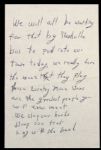 We will all be waiting
for that big Nashville
bus to pull into our
town today, we really love
the music that they play
These Country Music Stars
are the grandest people you
will ever meet
We clap our hands
along and feel
with the band